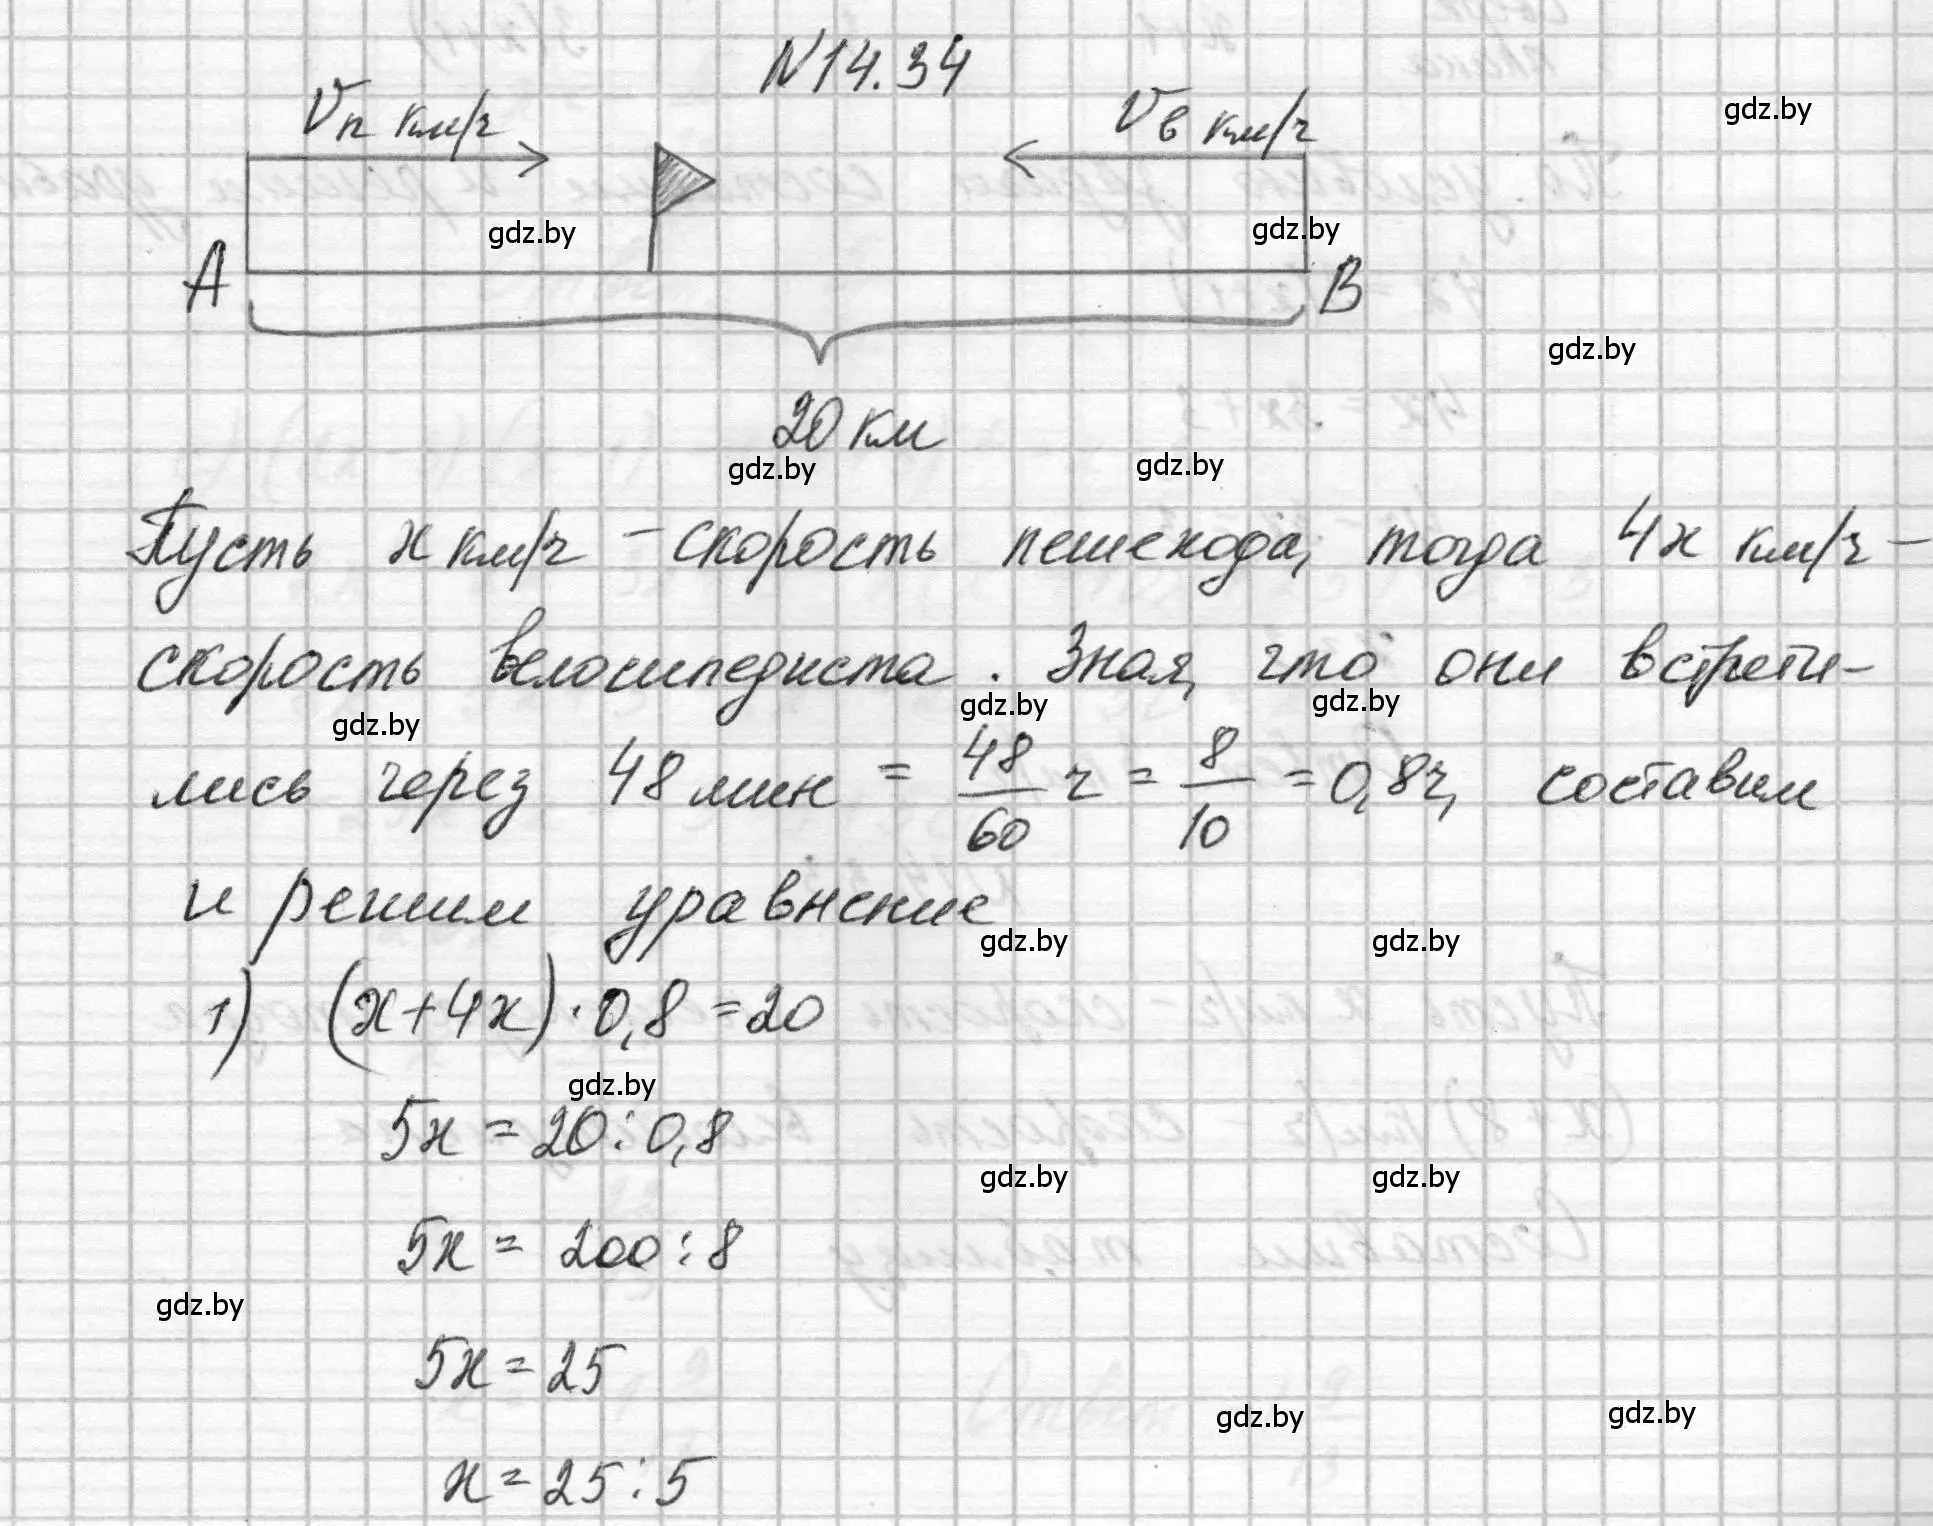 N14.34
gdz.by
Vп км/ч
Vв км/ч
gdz.by
gdz.by
A
B
gdz.by
20 км
gdz.by
gdz.by
Пусть x км/ч - скорость пешехода, тогда 4x км/ч -
скорость велосипедиста. Зная, что они встрети-
gdz.by
gdz.by
gdz.by
лись через 48 мин = 48/60 ч = 8/10 = 0,8ч, составим
и решим уравнение
gdz.by
gdz.by
1) (x+4x)·0,8=20
gdz.by
5x = 20:0,8
gdz.by
gdz.by
5x = 200:8
gdz.by
5x = 25
gdz.by
gdz.by
x = 25:5